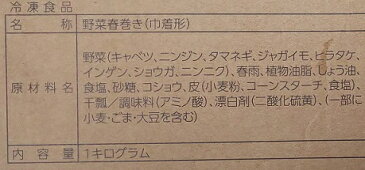 冷凍食品
名称 野菜春巻き(巾着形)
野菜(キャベツ、ニンジン、タマネギ、ジャガイモ、ヒラタケ、
インゲン、ショウガ、ニンニク)、春雨、植物油脂、しょう油、
原材料名 食塩、砂糖、コショウ、皮(小麦粉、コーンスターチ、食塩)、
干瓢/調味料(アミノ酸)、漂白剤(二酸化硫黄)、(一部に
小麦・ごま・大豆を含む)
内容量 1キログラム